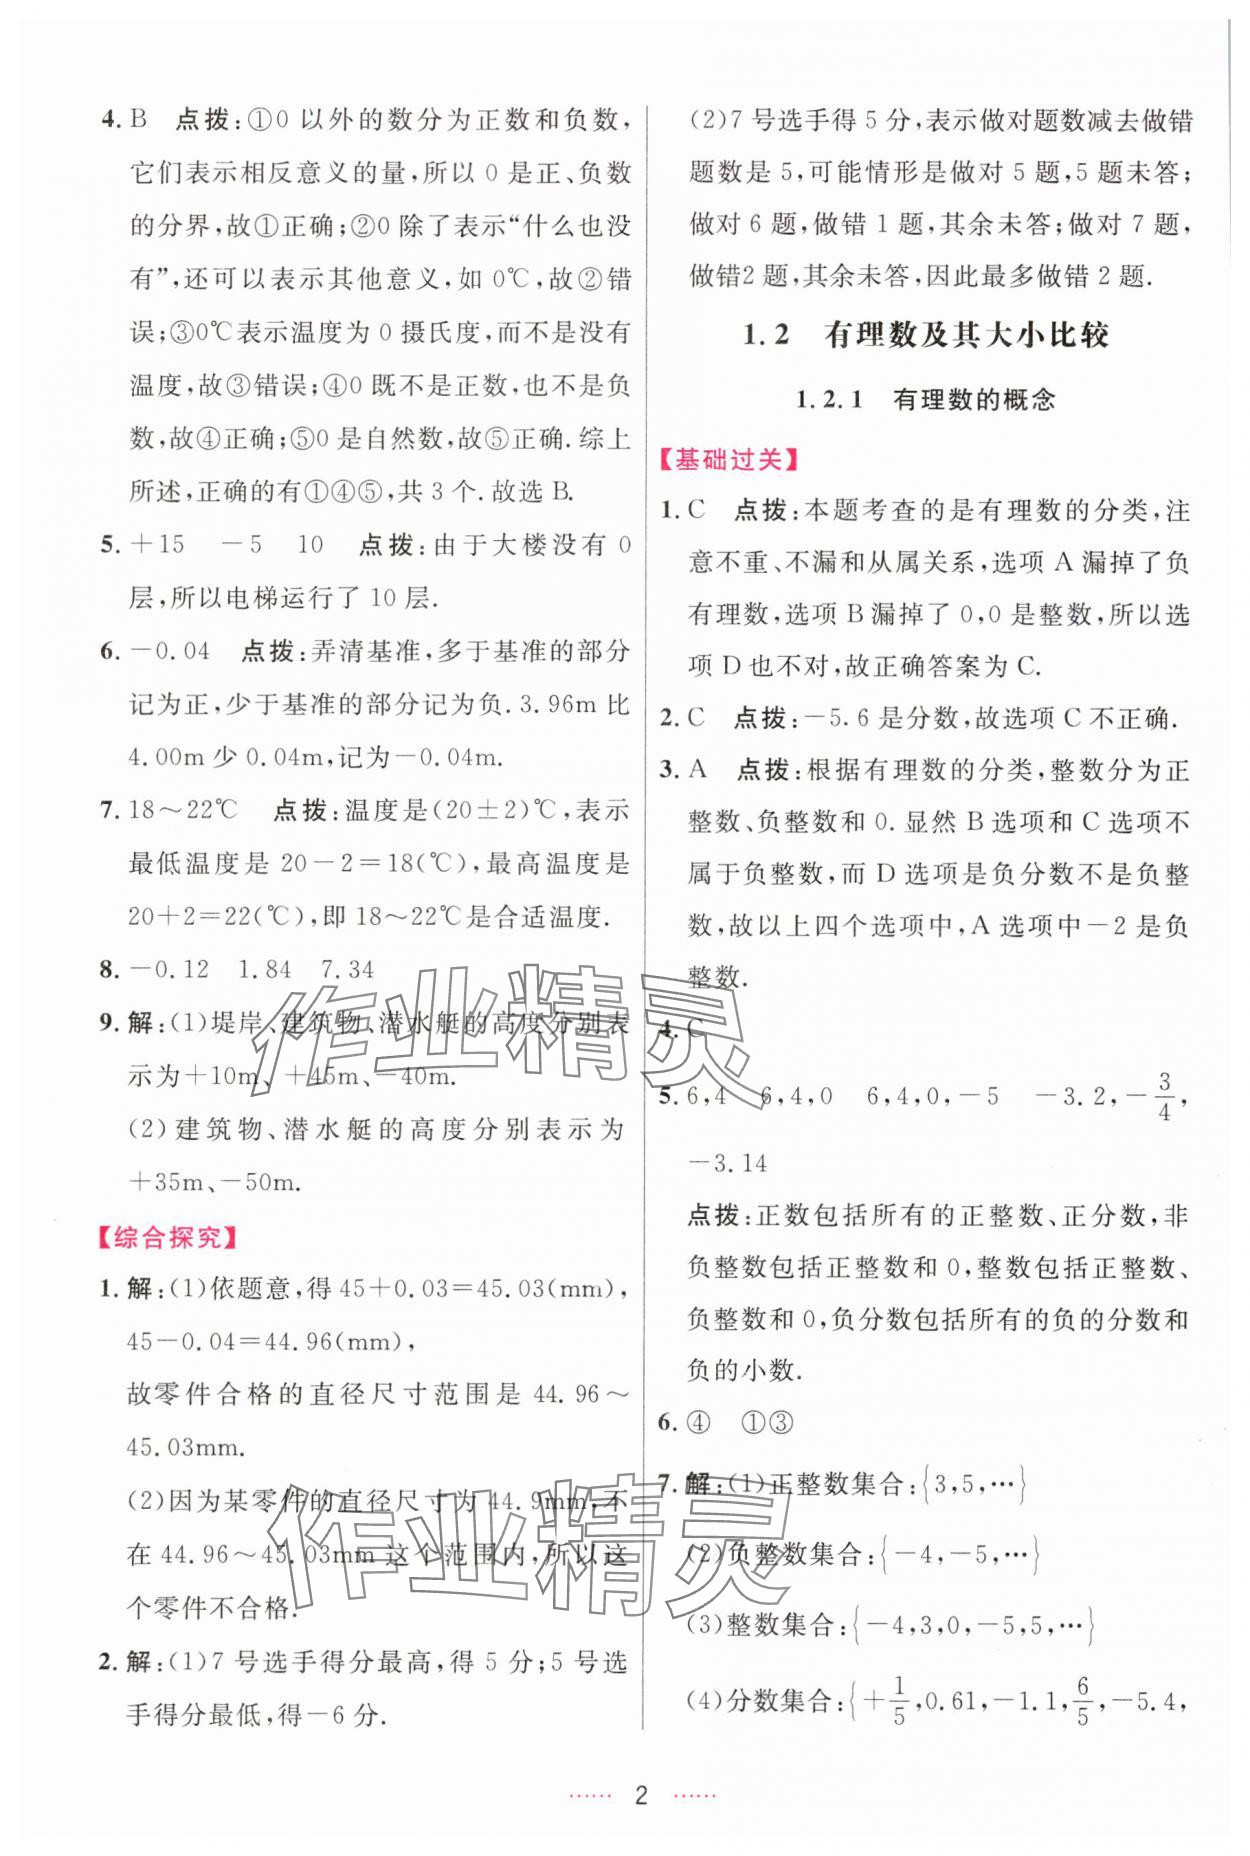 4. B　点拨:①0 以外的数分为正数和负数,
它们表示相反意义的量,所以 0 是正、负数
的分界,故①正确;②0 除了表示“什么也没
有”,还可以表示其他意义,如 0℃,故②错
误;③0℃表示温度为 0 摄氏度,而不是没有
温度,故③错误;④0 既不是正数,也不是负
数,故④正确;⑤0 是自然数,故⑤正确.综上
所述,正确的有①④⑤,共 3 个.故选 B.
5. +15　-5　10　点拨:由于大楼没有 0
层,所以电梯运行了 10 层.
6. -0.04　点拨:弄清基准,多于基准的部分
记为正,少于基准的部分记为负.3.96m 比
4.00m 少 0.04m,记为-0.04m.
7. 18～22℃　点拨:温度是(20±2)℃,表示
最低温度是 20-2=18(℃),最高温度是
20+2=22(℃),即 18～22℃是合适温度.
8. -0.12　1.84　7.34
9. 解:(1)堤岸、建筑物、潜水艇的高度分别表
示为+10m、+45m、-40m.
(2)建筑物、潜水艇的高度分别表示为
+35m、-50m.
【综合探究】
1. 解:(1)依题意,得 45+0.03=45.03(mm),
45-0.04=44.96(mm),
故零件合格的直径尺寸范围是 44.96～
45.03mm.
(2)因为某零件的直径尺寸为 44.9mm,不
在 44.96～45.03mm 这个范围内,所以这
个零件不合格.
2. 解:(1)7 号选手得分最高,得 5 分;5 号选
手得分最低,得-6 分.
(2)7 号选手得 5 分,表示做对题数减去做错
题数是 5,可能情形是做对 5 题,5 题未答;
做对 6 题,做错 1 题,其余未答;做对 7 题,
做错2 题,其余未答,因此最多做错 2 题.
1.2　有理数及其大小比较
1.2.1　有理数的概念
【基础过关】
1. C　点拨:本题考查的是有理数的分类,注
意不重、不漏和从属关系,选项 A 漏掉了负
有理数,选项 B 漏掉了 0,0 是整数,所以选
项 D 也不对,故正确答案为 C.
2. C　点拨:-5.6 是分数,故选项 C 不正确.
3. A　点拨:根据有理数的分类,整数分为正
整数、负整数和 0.显然 B 选项和 C 选项不
属于负整数,而 D 选项是负分数不是负整
数,故以上四个选项中,A 选项中-2 是负
整数.
4. C
5. 6,4　6,4,0　6,4,0,-5　-3.2,-3/4,
-3.14
点拨:正数包括所有的正整数、正分数,非
负整数包括正整数和 0,整数包括正整数、
负整数和 0,负分数包括所有的负的分数和
负的小数.
6. ④　①③
7. 解:(1)正整数集合:{3,5,…}
(2)负整数集合:{-4,-5,…}
(3)整数集合:{-4,3,0,-5,5,…}
(4)分数集合:{+1/5,0.61,-1.1,6/5,-5.4,
作业精灵
作业精灵
…… 2 ……